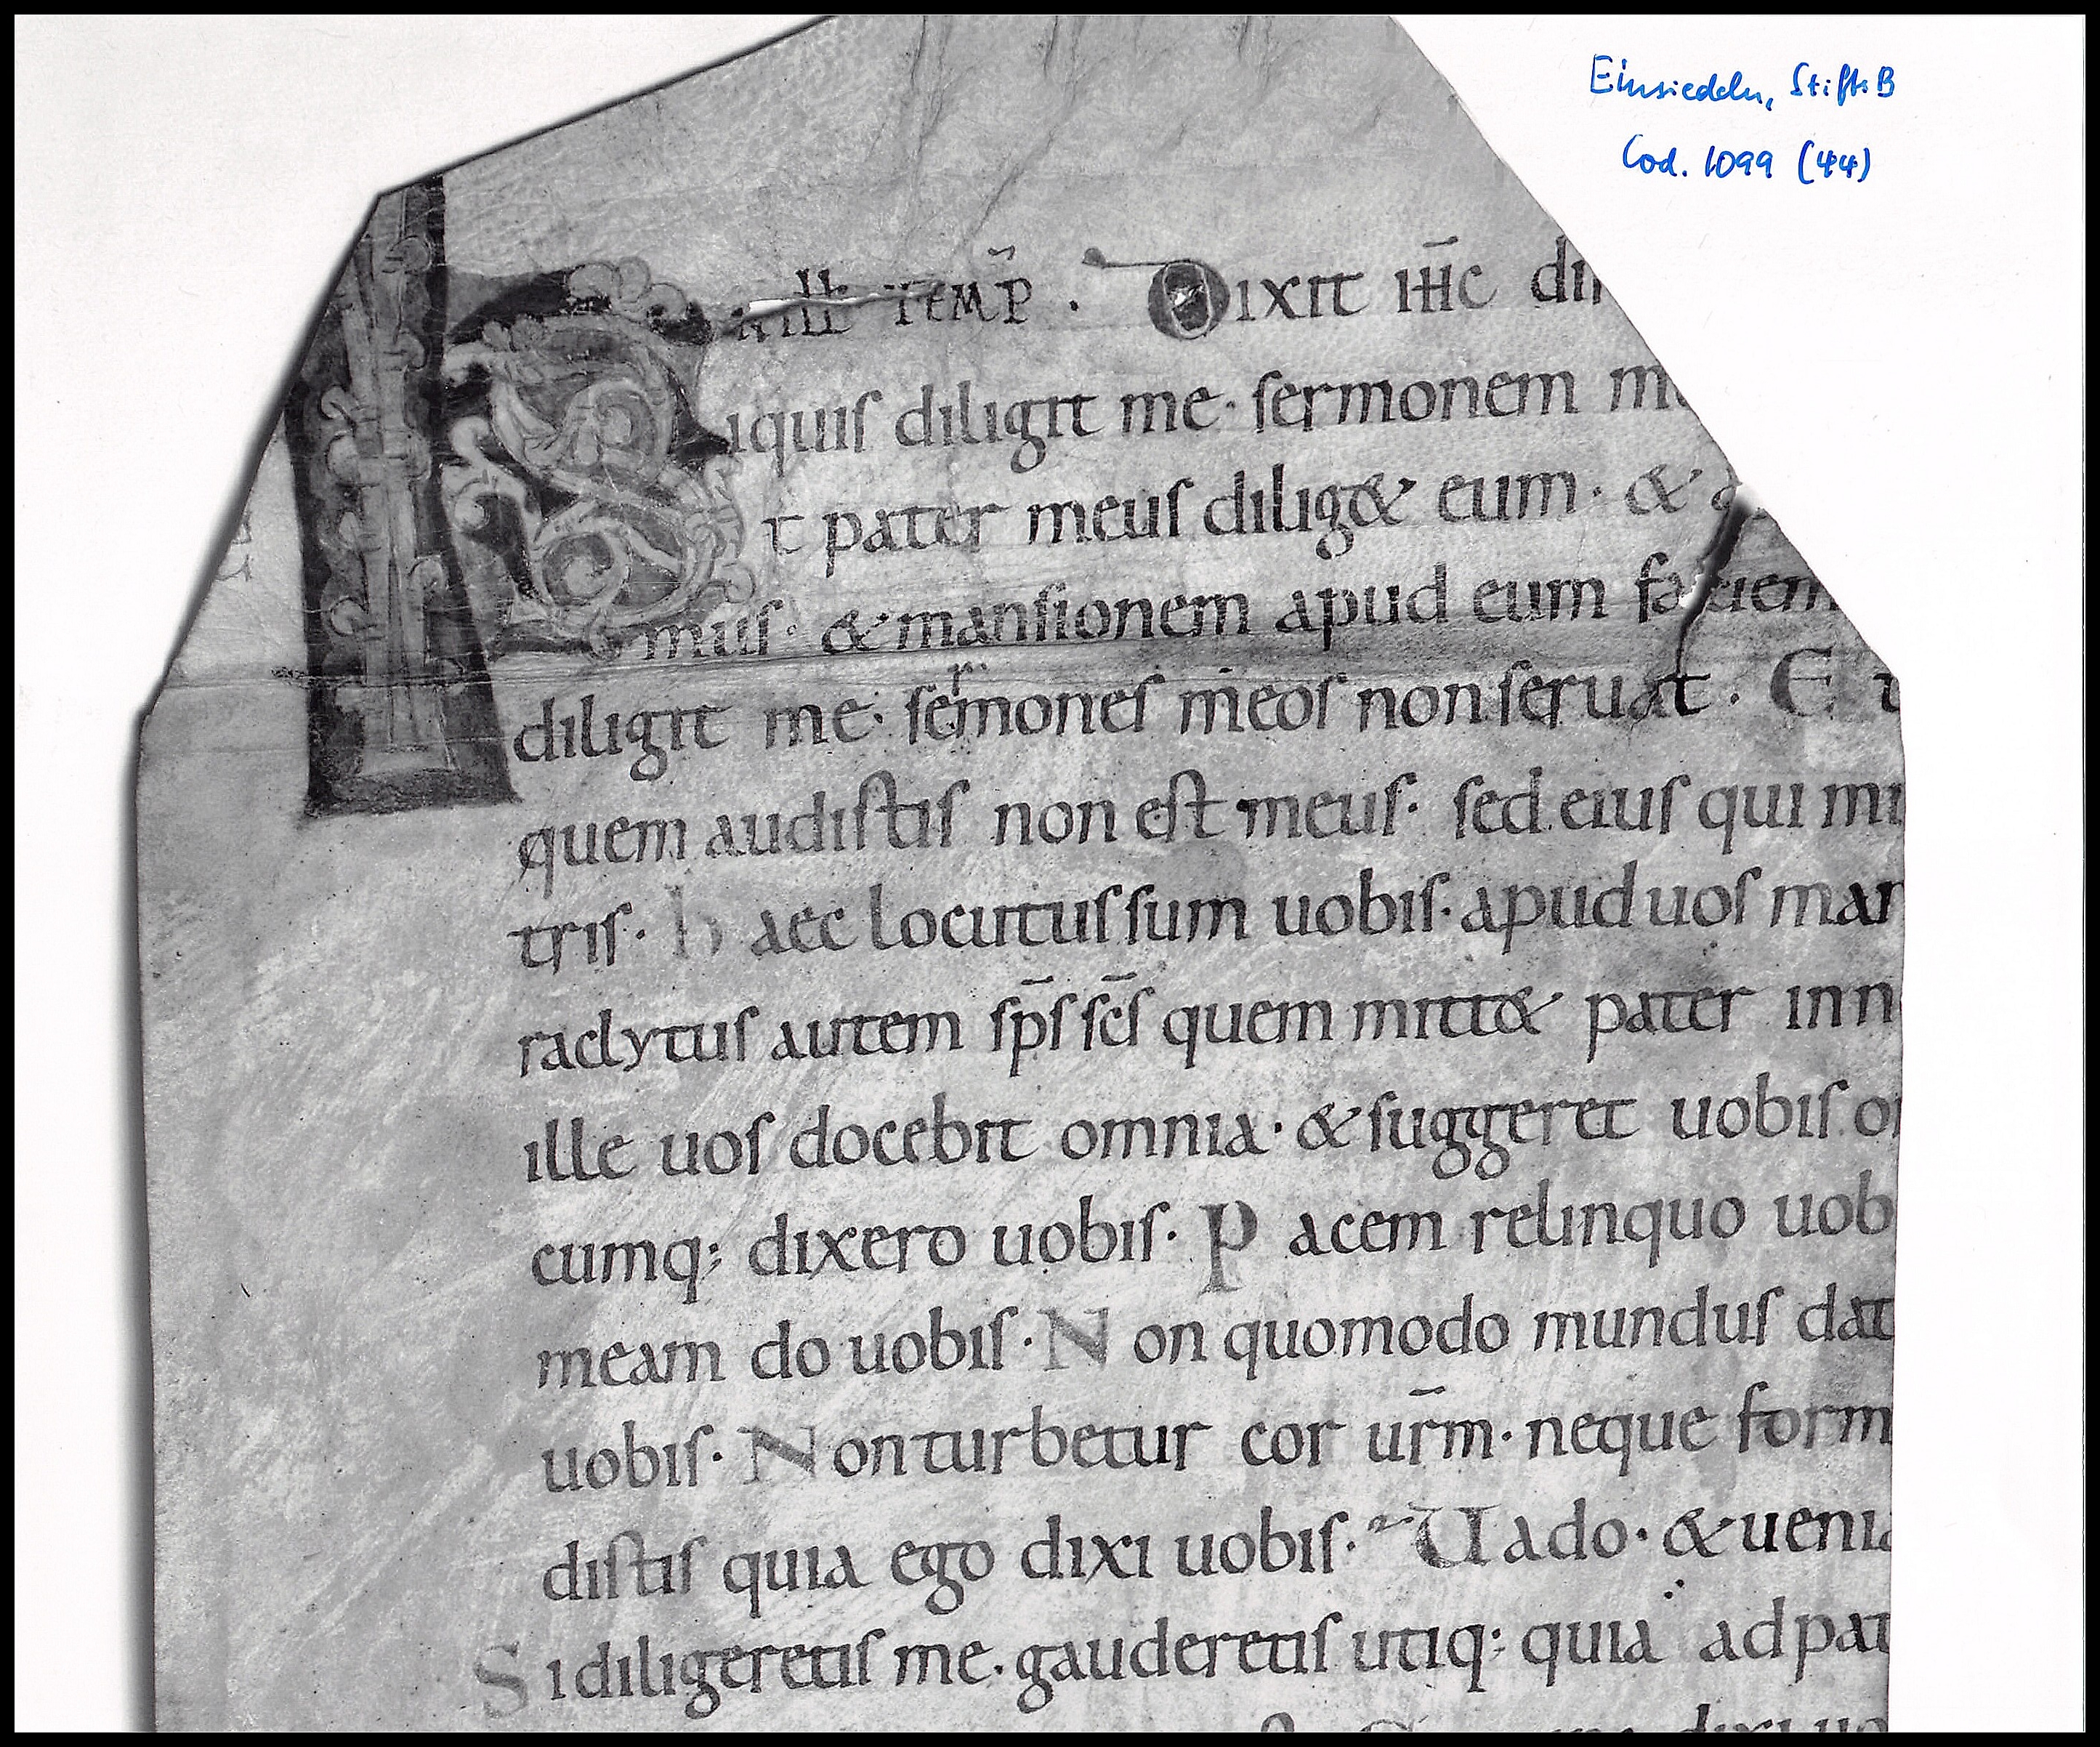 Einsiedeln, StiftsB
Cod. 1099 (44)
ill temp̄. Dixit ih̄c di
iquis diligit me· sermonem me
t pater meus diliget eum· & a
mus· & mansionem apud eum faciem
diligit me· sermones meos non seruat. Et
quem audistis non est meus· sed eius qui mi
tris· haec locutus sum uobis· apud uos man
raclytus autem sp̄s sc̄s quem mittet pater in n
ille uos docebit omnia· & suggeret uobis o
cumq; dixero uobis· Pacem relinquo uob
meam do uobis· Non quomodo mundus dat
uobis· Non turbetur cor ur̄m· neque form
distis quia ego dixi uobis· Uado· & uenia
Si diligeretis me· gauderetis utiq; quia ad pat
dixi uo